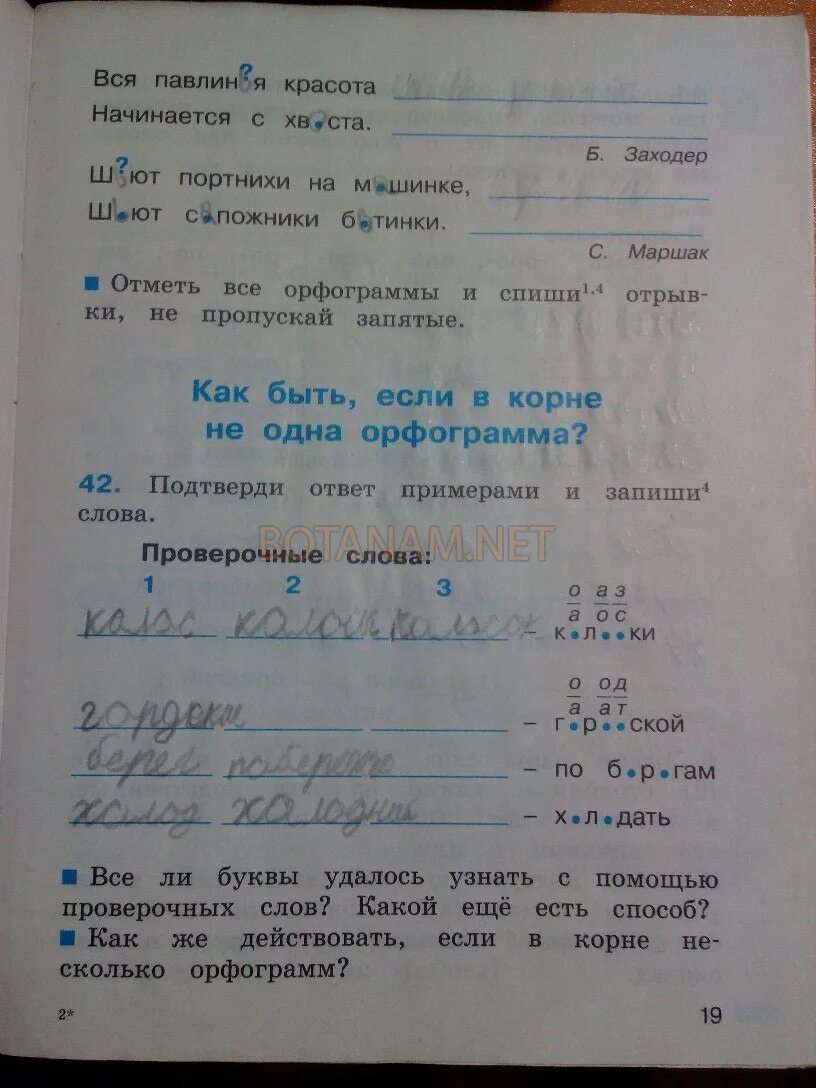 Вся павлин?я красота
Начинается с хв•ста.
Б. Заходер
Ш?ют портнихи на м•шинке,
Ш•ют с•пожники б•тинки.
С. Маршак
■ Отметь все орфограммы и спиши1,4 отрыв-
ки, не пропускай запятые.
Как быть, если в корне
не одна орфограмма?
42. Подтверди ответ примерами и запиши4
слова.
BOTANAM.NET
Проверочные слова:
1 2 3
о аз
а ос
колос – к•л••ки
о од
а ат
– г•р••ской
берег – по б•р•гам
холод – х•л•дать
■ Все ли буквы удалось узнать с помощью
проверочных слов? Какой ещё есть способ?
■ Как же действовать, если в корне не-
сколько орфограмм?
2* 19